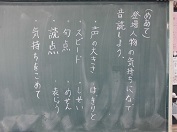 (めあて)
登場人物の気持ちになって
音読しよう。
・声の大きさ ・はきりと
・スピード ・しせい
・句点 ・めせん
・読点 ・表じょう
・気持ちをこめて